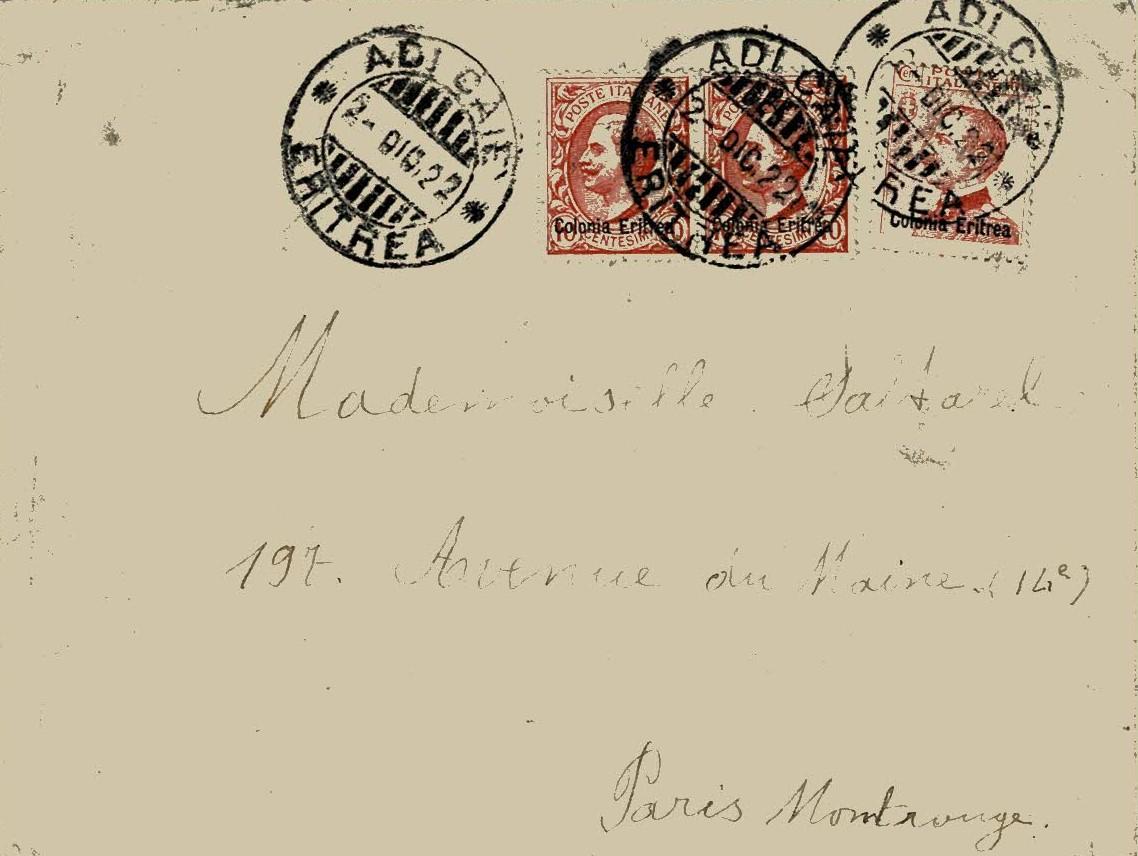 ADI CAIE'
2- DIC.22
ERITREA
POSTE ITALIANE
Colonia Eritrea
10 CENTESIMI 10
ADI CAIE'
2- DIC.22
ERITREA
Colonia Eritrea
CENTESIMI 10
ADI C
DIC.22
REA
Colonia Eritrea
Mademoiselle Saltarel
197. Avenue du Maine (14e)
Paris Montrouge.